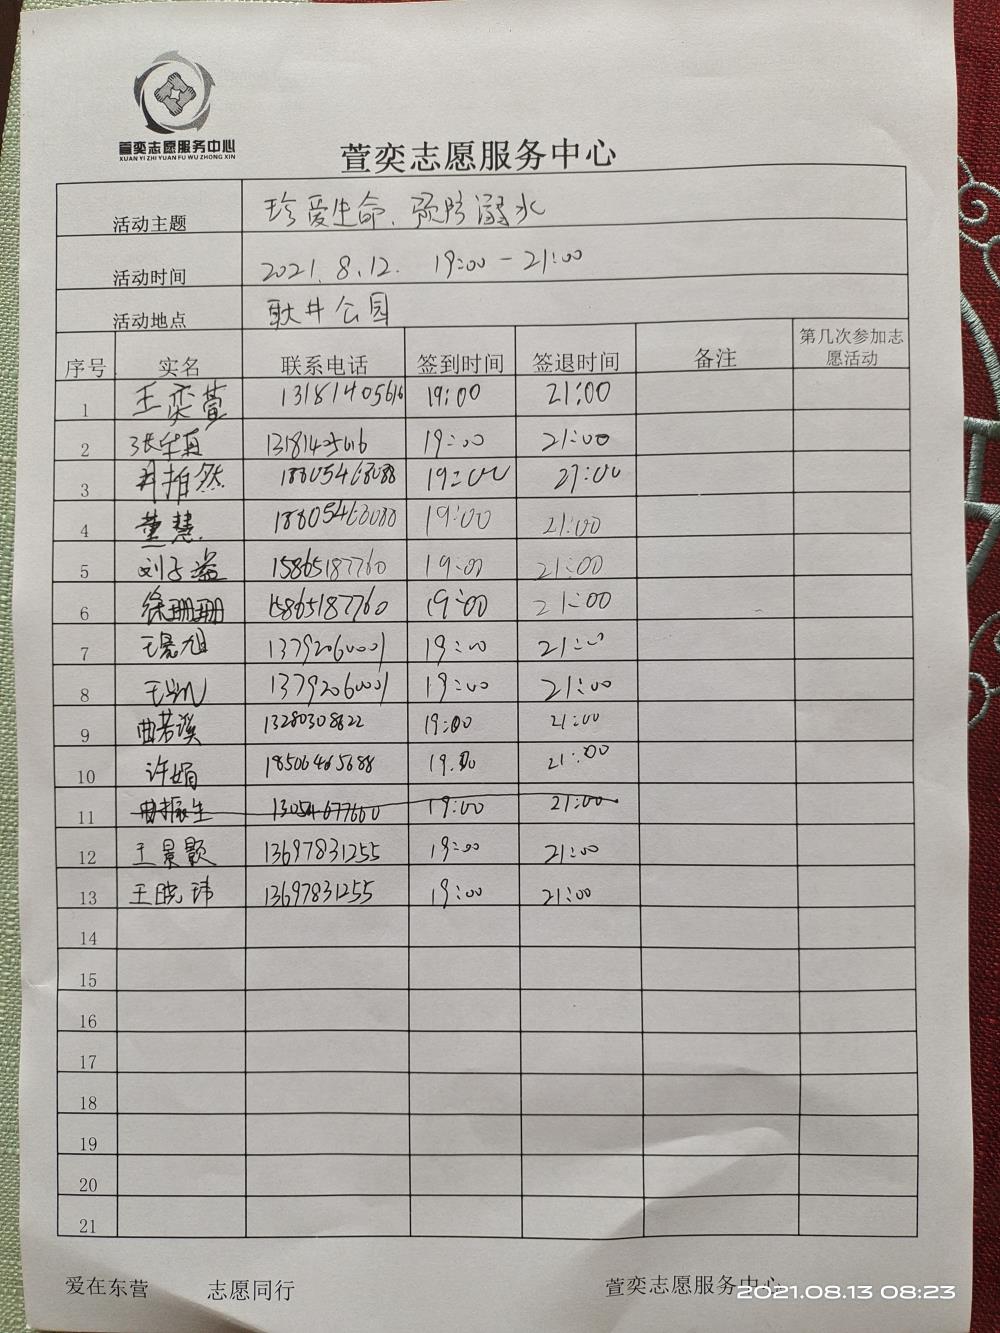 萱奕志愿服务中心
XUAN YI ZHI YUAN FU WU ZHONG XIN
萱奕志愿服务中心
活动主题 珍爱生命、预防溺水
活动时间 2021.8.12. 19:00-21:00
活动地点 耿井公园
序号 实名 联系电话 签到时间 签退时间 备注 第几次参加志愿活动
1 王奕萱 13181405616 19:00 21:00
2 19:00 21:00
3 18805468088 19:00 21:00
4 董慧 18805468088 19:00 21:00
5 15865187760 19:00 21:00
6 徐珊珊 15865187760 19:00 21:00
7 王亮旭 13792060001 19:00 21:00
8 王凯 13792060001 19:00 21:00
9 曲若溪 13280308822 19:00 21:00
10 许娟 18506465688 19:00 21:00
11 曲振生 13054677660 19:00 21:00
12 王景颢 13697831255 19:00 21:00
13 王晓玮 13697831255 19:00 21:00
14
15
16
17
18
19
20
21
爱在东营 志愿同行 萱奕志愿服务中心
2021.08.13 08:23